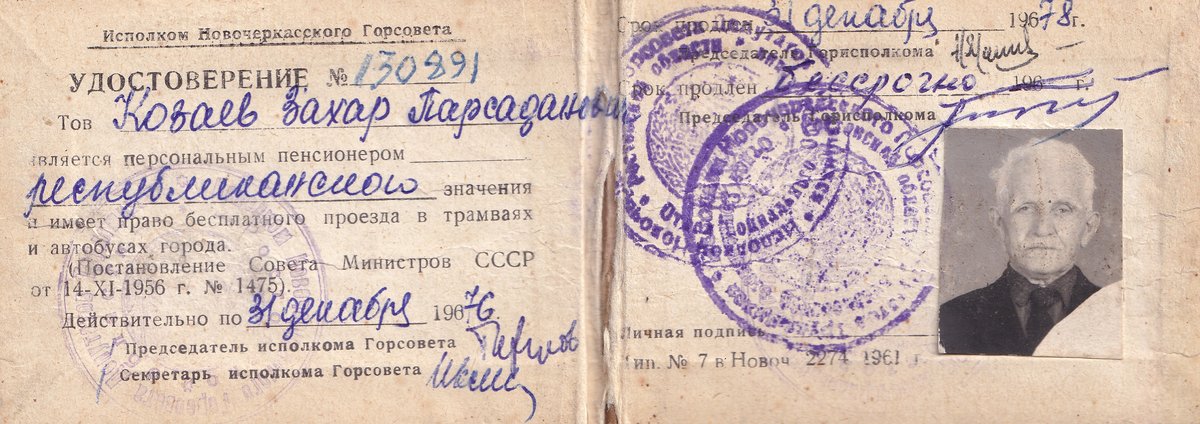 Исполком Новочеркасского Горсовета
УДОСТОВЕРЕНИЕ № 130891
Тов Козаев Захар Парсаданович
является персональным пенсионером
республиканского значения
и имеет право бесплатного проезда в трамваях
и автобусах города.
(Постановление Совета Министров СССР
от 14-XI-1956 г. № 1475).
Действительно по 31 декабря 1976.
Председатель исполкома Горсовета
Секретарь исполкома Горсовета
Срок продлен 31 декабря 1978г.
Председатель Горисполкома
Срок продлен Бессрочно 196 г.
Председатель Горисполкома
Личная подпись
Тип. № 7 в Новоч 2274 1961 г.